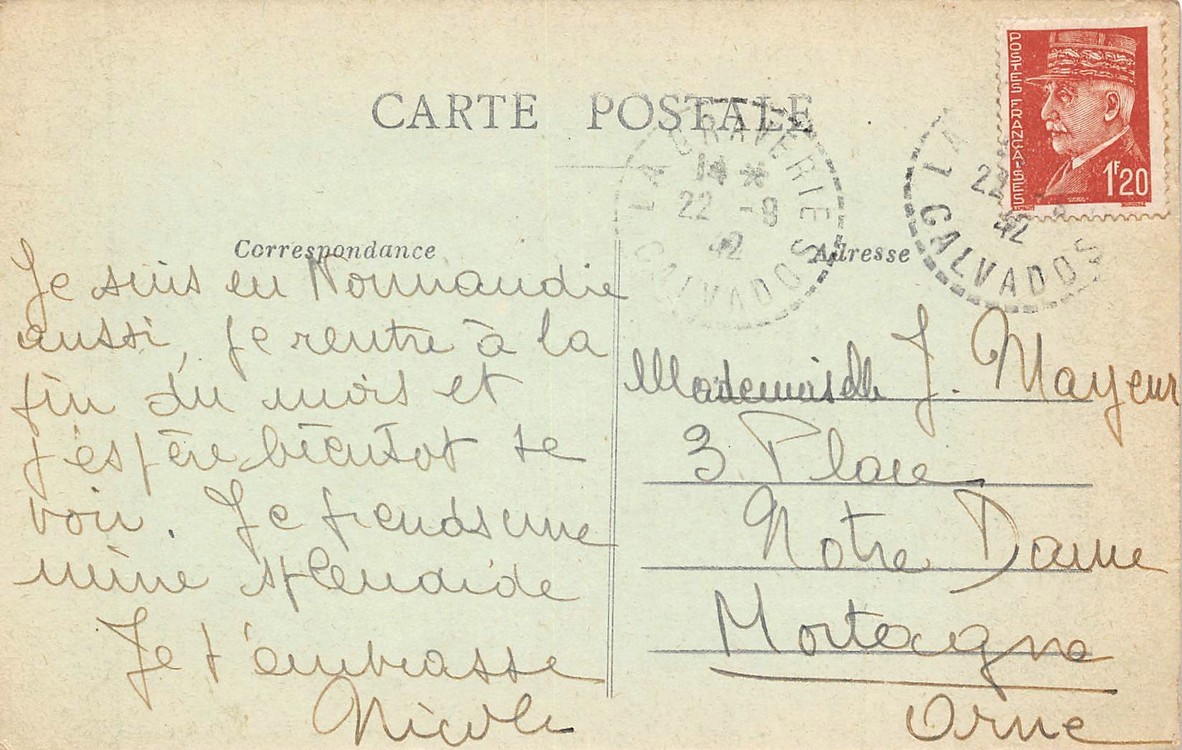 CARTE POSTALE
POSTES FRANÇAISES
1F20
LA GRAVERIE
14 *
22 -9
42
CALVADOS
LA
22
42
CALVADOS
Correspondance
Je suis en Normandie
aussi, je rentre à la
fin du mois et
j'espère bientot te
voir. Je prends une
mine splendide
Je t'embrasse
Nicole
Adresse
Mademoiselle J. Mayeur
3 Place
Notre Dame
Mortagne
Orne